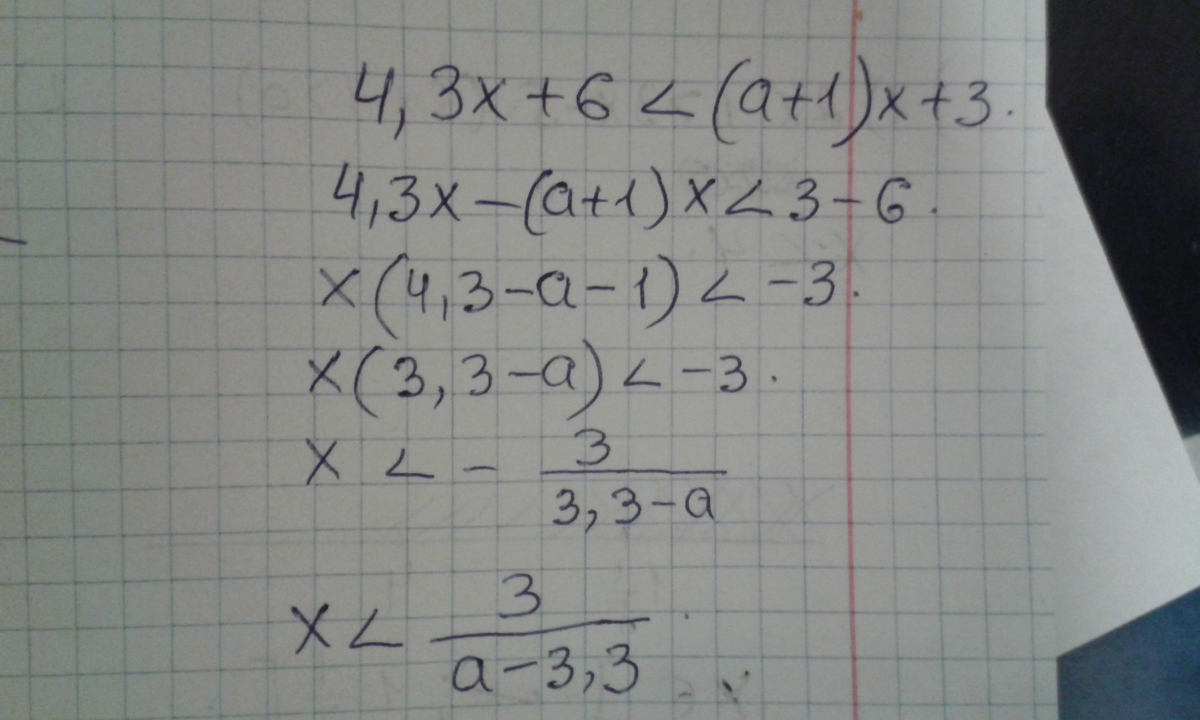 4,3x+6<(a+1)x+3.
4,3x-(a+1)x<3-6.
x(4,3-a-1)<-3.
x(3,3-a)<-3.
x < - 3/(3,3-a)
x < 3/(a-3,3).